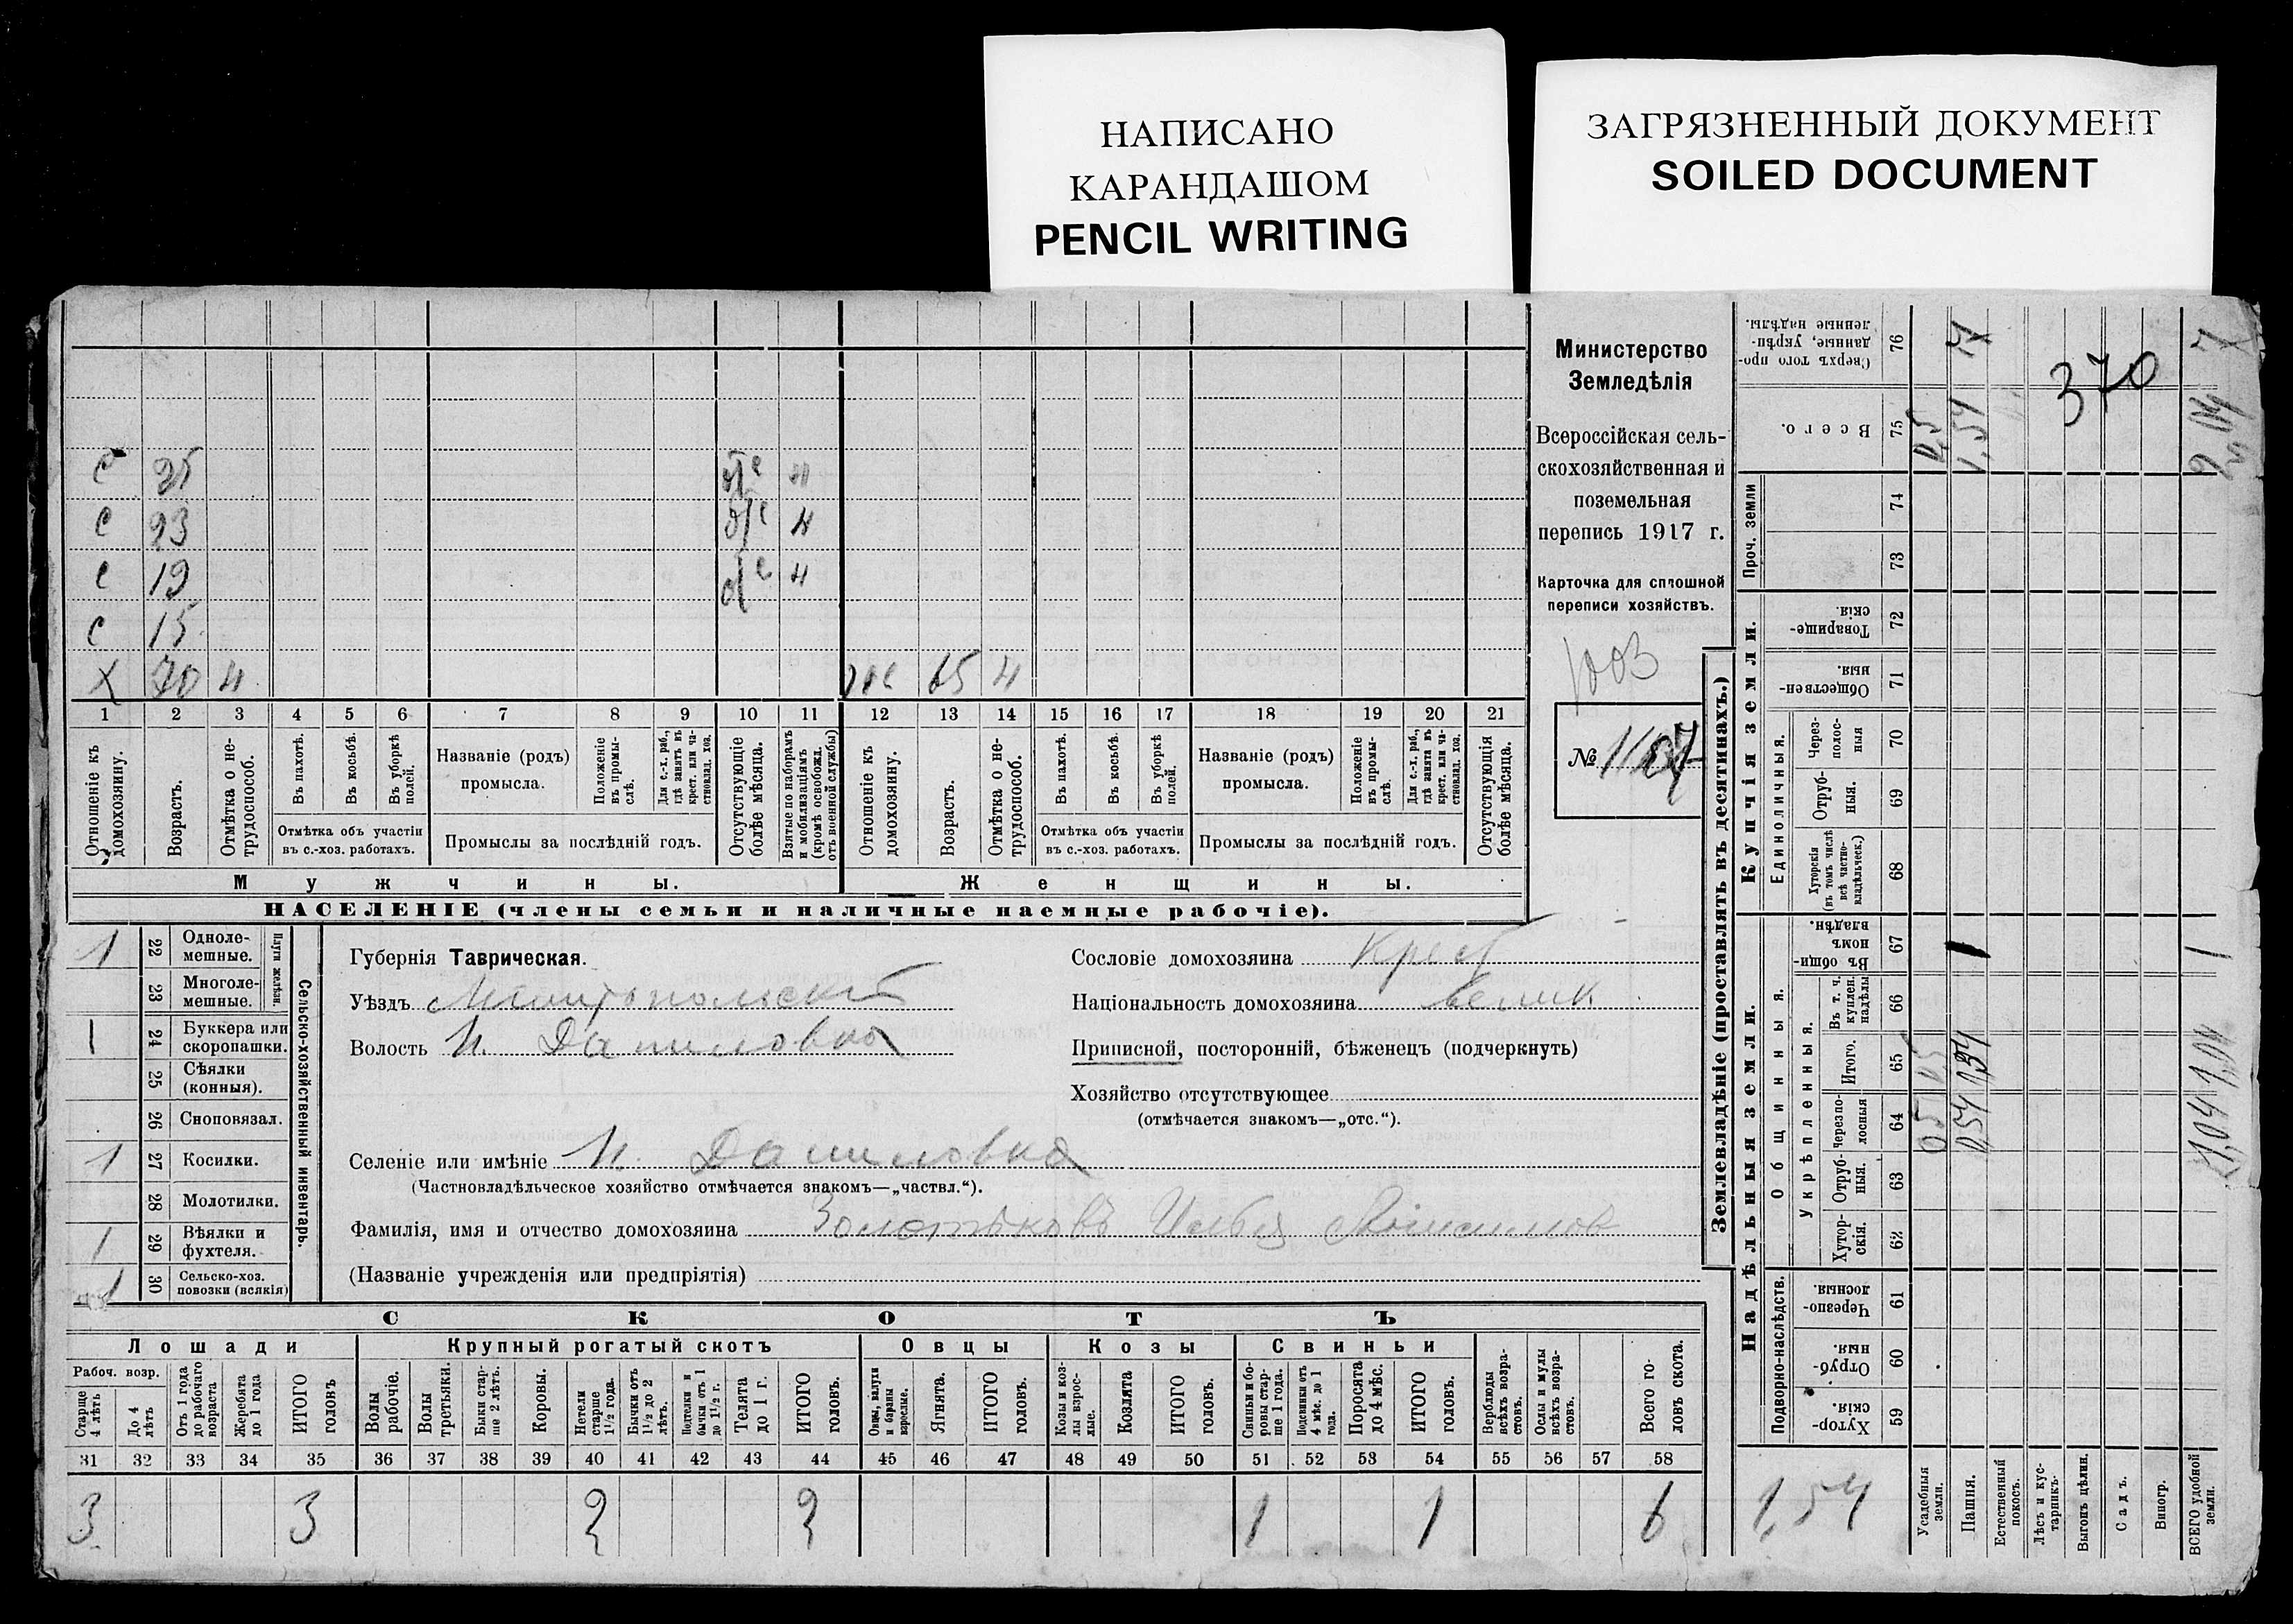 НАПИСАНО
КАРАНДАШОМ
PENCIL WRITING
ЗАГРЯЗНЕННЫЙ ДОКУМЕНТ
SOILED DOCUMENT
с 25 н
с 23 н
с 19 н
с 15
х 70 н 65 н
1 2 3 4 5 6 7 8 9 10 11 12 13 14 15 16 17 18 19 20 21
Отношеніе къ домохозяину.
Возрастъ.
Отмѣтка о нетрудоспособ.
Въ пахотѣ.
Въ косьбѣ.
Въ уборкѣ полей.
Отмѣтка объ участіи
въ с.-хоз. работахъ.
Названіе (родъ)
промысла.
Положеніе въ промыслѣ.
Для с.-х. раб., гдѣ занятъ въ крест. или частновлад. хоз.
Промыслы за послѣдній годъ.
Отсутствующіе болѣе мѣсяца.
Взятые по наборамъ и мобилизаціямъ (кромѣ освобожд. отъ военной службы)
Отношеніе къ домохозяину.
Возрастъ.
Отмѣтка о нетрудоспособ.
Въ пахотѣ.
Въ косьбѣ.
Въ уборкѣ полей.
Отмѣтка объ участіи
въ с.-хоз. работахъ.
Названіе (родъ)
промысла.
Положеніе въ промыслѣ.
Для с.-х. раб., гдѣ занята въ крест. или частновлад. хоз.
Промыслы за послѣдній годъ.
Отсутствующія болѣе мѣсяца.
Мужчины.
Женщины.
НАСЕЛЕНІЕ (члены семьи и наличные наемные рабочіе).
Министерство
Земледѣлія
Всероссійская сель-
скохозяйственная и
поземельная
перепись 1917 г.
Карточка для сплошной
переписи хозяйствъ.
1003
№
Сельско-хозяйственный инвентарь.
Плуги желѣзн.
1 22 Одноле-
мешные.
23 Многоле-
мешные.
1 24 Буккера или
скоропашки.
25 Сѣялки
(конныя).
26 Сноповязал.
1 27 Косилки.
28 Молотилки.
1 29 Вѣялки и
фухтеля.
1 30 Сельско-хоз.
повозки (всякія)
Губернія Таврическая.
Уѣздъ Мелитопольскій
Волость Н. Даниловка
Сословіе домохозяина Крест
Національность домохозяина велик.
Приписной, посторонній, бѣженецъ (подчеркнуть)
Хозяйство отсутствующее
(отмѣчается знакомъ—„отс.“).
Селеніе или имѣніе Н. Даниловка
(Частновладѣльческое хозяйство отмѣчается знакомъ—„частвл.“).
Фамилія, имя и отчество домохозяина Илья
(Названіе учрежденія или предпріятія)
СКОТЪ
Лошади
Крупный рогатый скотъ
Овцы
Козы
Свиньи
Рабоч. возр.
Старше 4 лѣтъ
До 4 лѣтъ
Отъ 1 года до рабочаго возраста
Жеребята до 1 года
ИТОГО головъ
Волы рабочіе.
Волы третьяки.
Быки старше 2 лѣтъ.
Коровы.
Нетели старше 1½ года.
Бычки отъ 1½ до 2 лѣтъ.
Подтелки и бычки отъ 1 до 1½ г.
Телята до 1 г.
ИТОГО головъ.
Овцы, валухи и бараны взрослые.
Ягнята.
ИТОГО головъ.
Козы и козлы взрослые.
Козлята
ИТОГО головъ.
Свиньи и боровы старше 1 года.
Подсвинки отъ 4 мѣс. до 1 года.
Поросята до 4 мѣс.
ИТОГО головъ.
Верблюды всѣхъ возрастовъ.
Ослы и мулы всѣхъ возрастовъ.
Всего головъ скота.
31 32 33 34 35 36 37 38 39 40 41 42 43 44 45 46 47 48 49 50 51 52 53 54 55 56 57 58
3 3 2 2 1 1 6
Землевладѣніе (проставлять въ десятинахъ.)
Купчія земли.
Надѣльныя земли.
Сверхъ того проданные, укрѣпленные надѣлы. 76
Всего. 75
Проч. земли
74
73
Товарищескія. 72
Общественныя. 71
Единоличныя.
Черезполосныя 70
Отрубныя. 69
Хуторскія (въ томъ числѣ всѣ частновладѣльческ.) 68
Общинныя.
Въ общинномъ владѣн. 67
Укрѣпленныя.
Въ т. ч. куплен. надѣлы 66
Итого. 65
Черезполосныя 64
Отрубныя. 63
Хуторскія. 62
Подворно-наслѣдств.
Черезполосныя. 61
Отрубныя. 60
Хуторскія. 59
370
1,54
Усадебныя земли.
Пашня.
Естественный покосъ.
Лѣсъ и кустарникъ.
Выгонъ цѣлин.
Садъ.
Виногр.
ВСЕГО удобной земли.
0,5 0,5 0,5
0,54 0,54 1 1,54
1,04 1,04 1